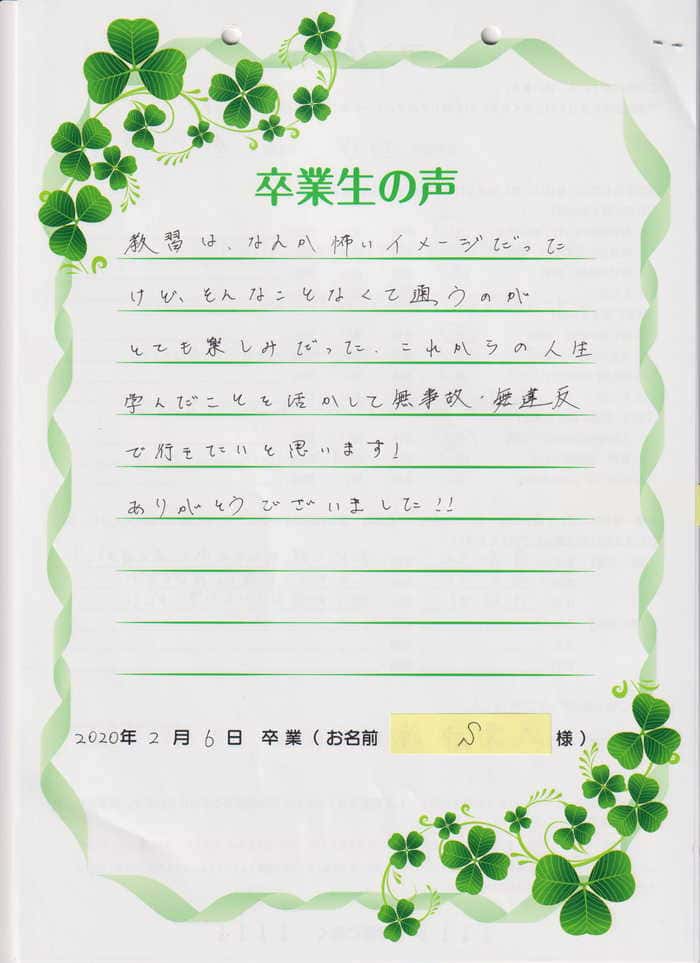 卒業生の声
教習は、なんか怖いイメージだった
けど、そんなことなくて通うのが
とても楽しみだった。これからの人生
学んだことを活かして無事故・無違反
で行きたいと思います!
ありがとうございました!!
2020年 2 月 6 日 卒業(お名前 S 様)